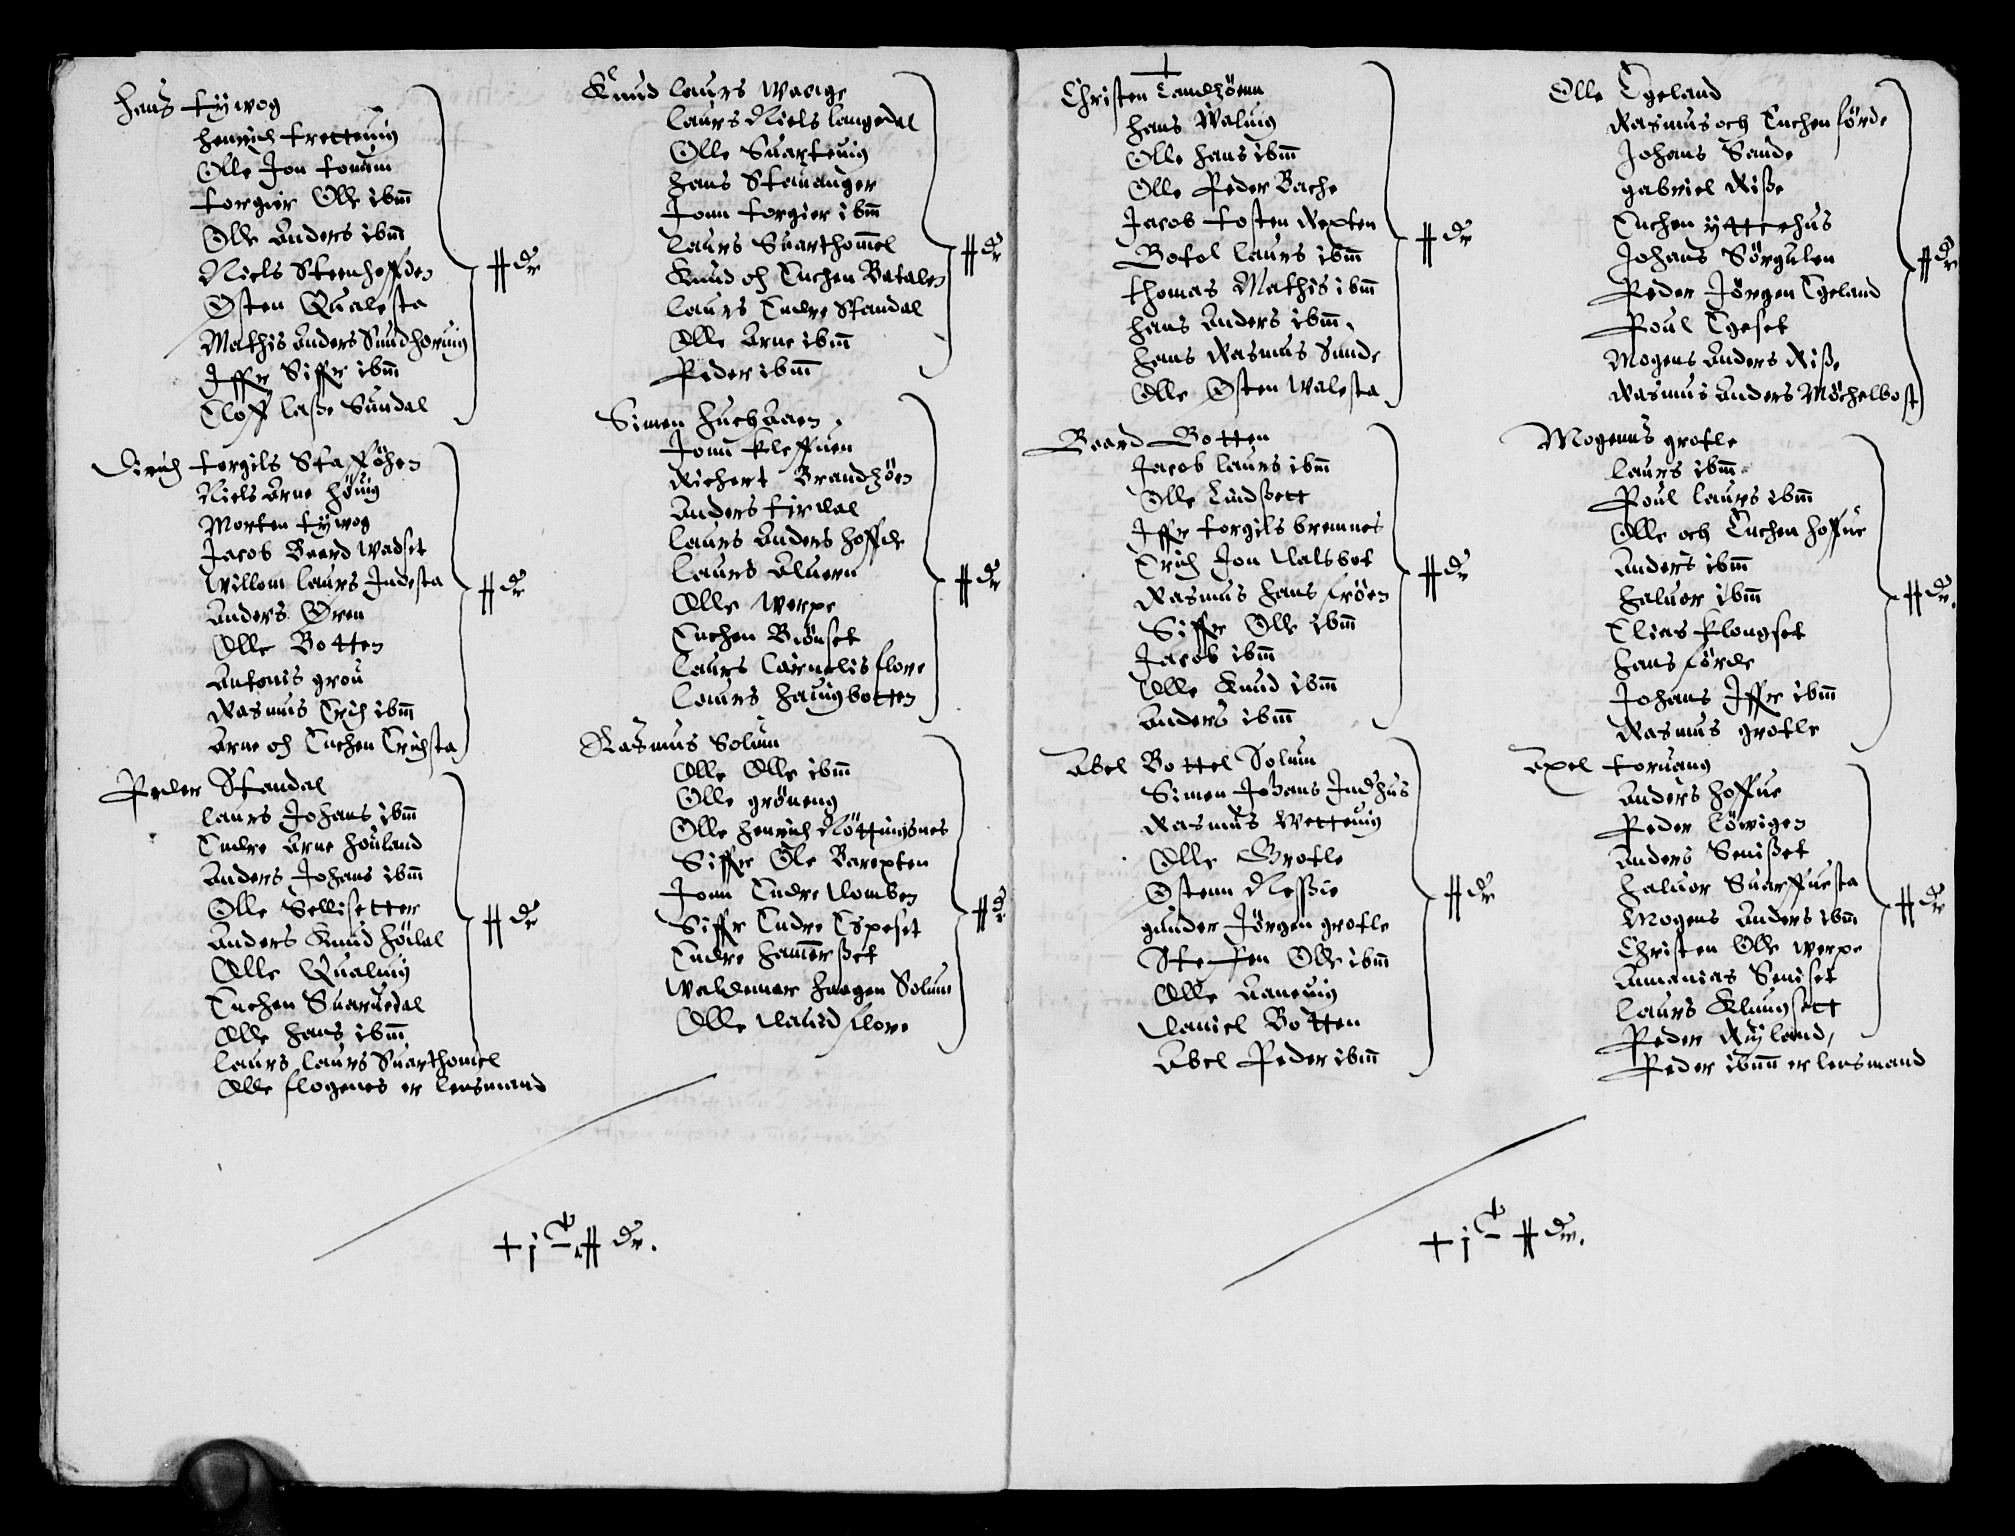 Hans Tÿwog
Henrich Trettewig
Olle Jon
Torgier Olle ibm̄
Olle Anders ibm̄
Niels Steenhoffden
Østen Qualesta
Mathis Anders Sundhorwig
Iffr Siffr ibm̄
Eloff Lasse Sundal
4 dr
Dirich Torgils Stafføßen
Niels Arne Høwig
Morten Tÿwog
Jacob Baard Wadset
Willom Laurs Indesta
Anders Øren
Olle Botten
Antonis Grou
Rasmus Erich ibm̄
Arne och Enchen Erichsta
4 dr
Peder Standal
Laurs Johans ibm̄
Endre Arne Houland
Anders Johans ibm̄
Olle Sellisetter
Anders Knud Høidal
Olle Qualwig
Enchen Suardal
Olle Hans ibm̄
Laurs Laurs Suarthomel
Olle Flogenes er lensmand
4 dr
Knud Laurs Waage
Laurs Niels Langedal
Olle Suartewig
Hans Stauanger
Jonn Torgier ibm̄
Laurs Suarthom̄el
Knud och Enchen Batalen
Laurs Endre Standal
Olle Arne ibm̄
Peder ibm̄
4 dr
Simen
Jonn Kleffuen
Richert Brandzøen
Anders Tirdal
Laurs Anders Hoffde
Laurs Aluern
Olle Werpe
Enchen Biønset
Laurs Cornelis Flore
Laurs Hauigbotten
4 dr
Rasmus Solum
Olle Olle ibm̄
Olle Grøneng
Olle Henrich Nøttingsnes
Siffr Ole Barexten
Jonn Endre Domben
Siffr Endre Espeset
Endre Ham̄erßet
Waldemar Haagen Solum
Olle Dauid Flore
4 dr
+ j — 4 dr.
Christen Tandzøenn
Hans Waluig
Olle Hans ibm̄
Olle Peder Bache
Jacob Tosten Rexten
Botol Laurs ibm̄
Thomas Mathis ibm̄
Hans Anders ibm̄
Hans Rasmus Sunde
Olle Østen Walesta
4 dr
Baard Botten
Jacob Laurs ibm̄
Olle Lindßett
Iffr Torgils Bremnes
Erich Jon Dalsbot
Rasmus Hans Frøen
Siffr Olle ibm̄
Jacob ibm̄
Olle Knud ibm̄
Anders ibm̄
4 dr
Abel Bottel Solum
Simen Johans Indhus
Rasmus Wettewig
Olle Grotle
Østenn Nessie
Gunder Jørgen Grotle
Steffen Olle ibm̄
Olle Aaneuig
Daniel Botten
Abel Peder ibm̄
4 dr
Olle Egeland
Rasmus och Enchen Førde
Johans Sande
Gabriel Riße
Enchen Ÿttrehus
Johans Sørgulen
Peder Jørgen Egeland
Poul Egeset
Mogens Anders Riße
Rasmus Anders Møchelbost
4 dr
Mogenns Grotle
Laurs ibm̄
Poul Laurs ibm̄
Olle och Enchen Hoffue
Anders ibm̄
Haluor ibm̄
Elias Klongset
Hans Førde
Johans Iffr ibm̄
Rasmus Grotle
4 dr.
Axel Toruang
Anders Hoffue
Peder Løwigen
Anders Senißet
Haluor Suarffuesta
Mogens Anders ibm̄
Christen Olle Werpe
Ananias Seniset
Laurs Klungsett
Peder Rÿland,
Peder ibm̄ er lensmand
4 dr
+ j — 4 dr.